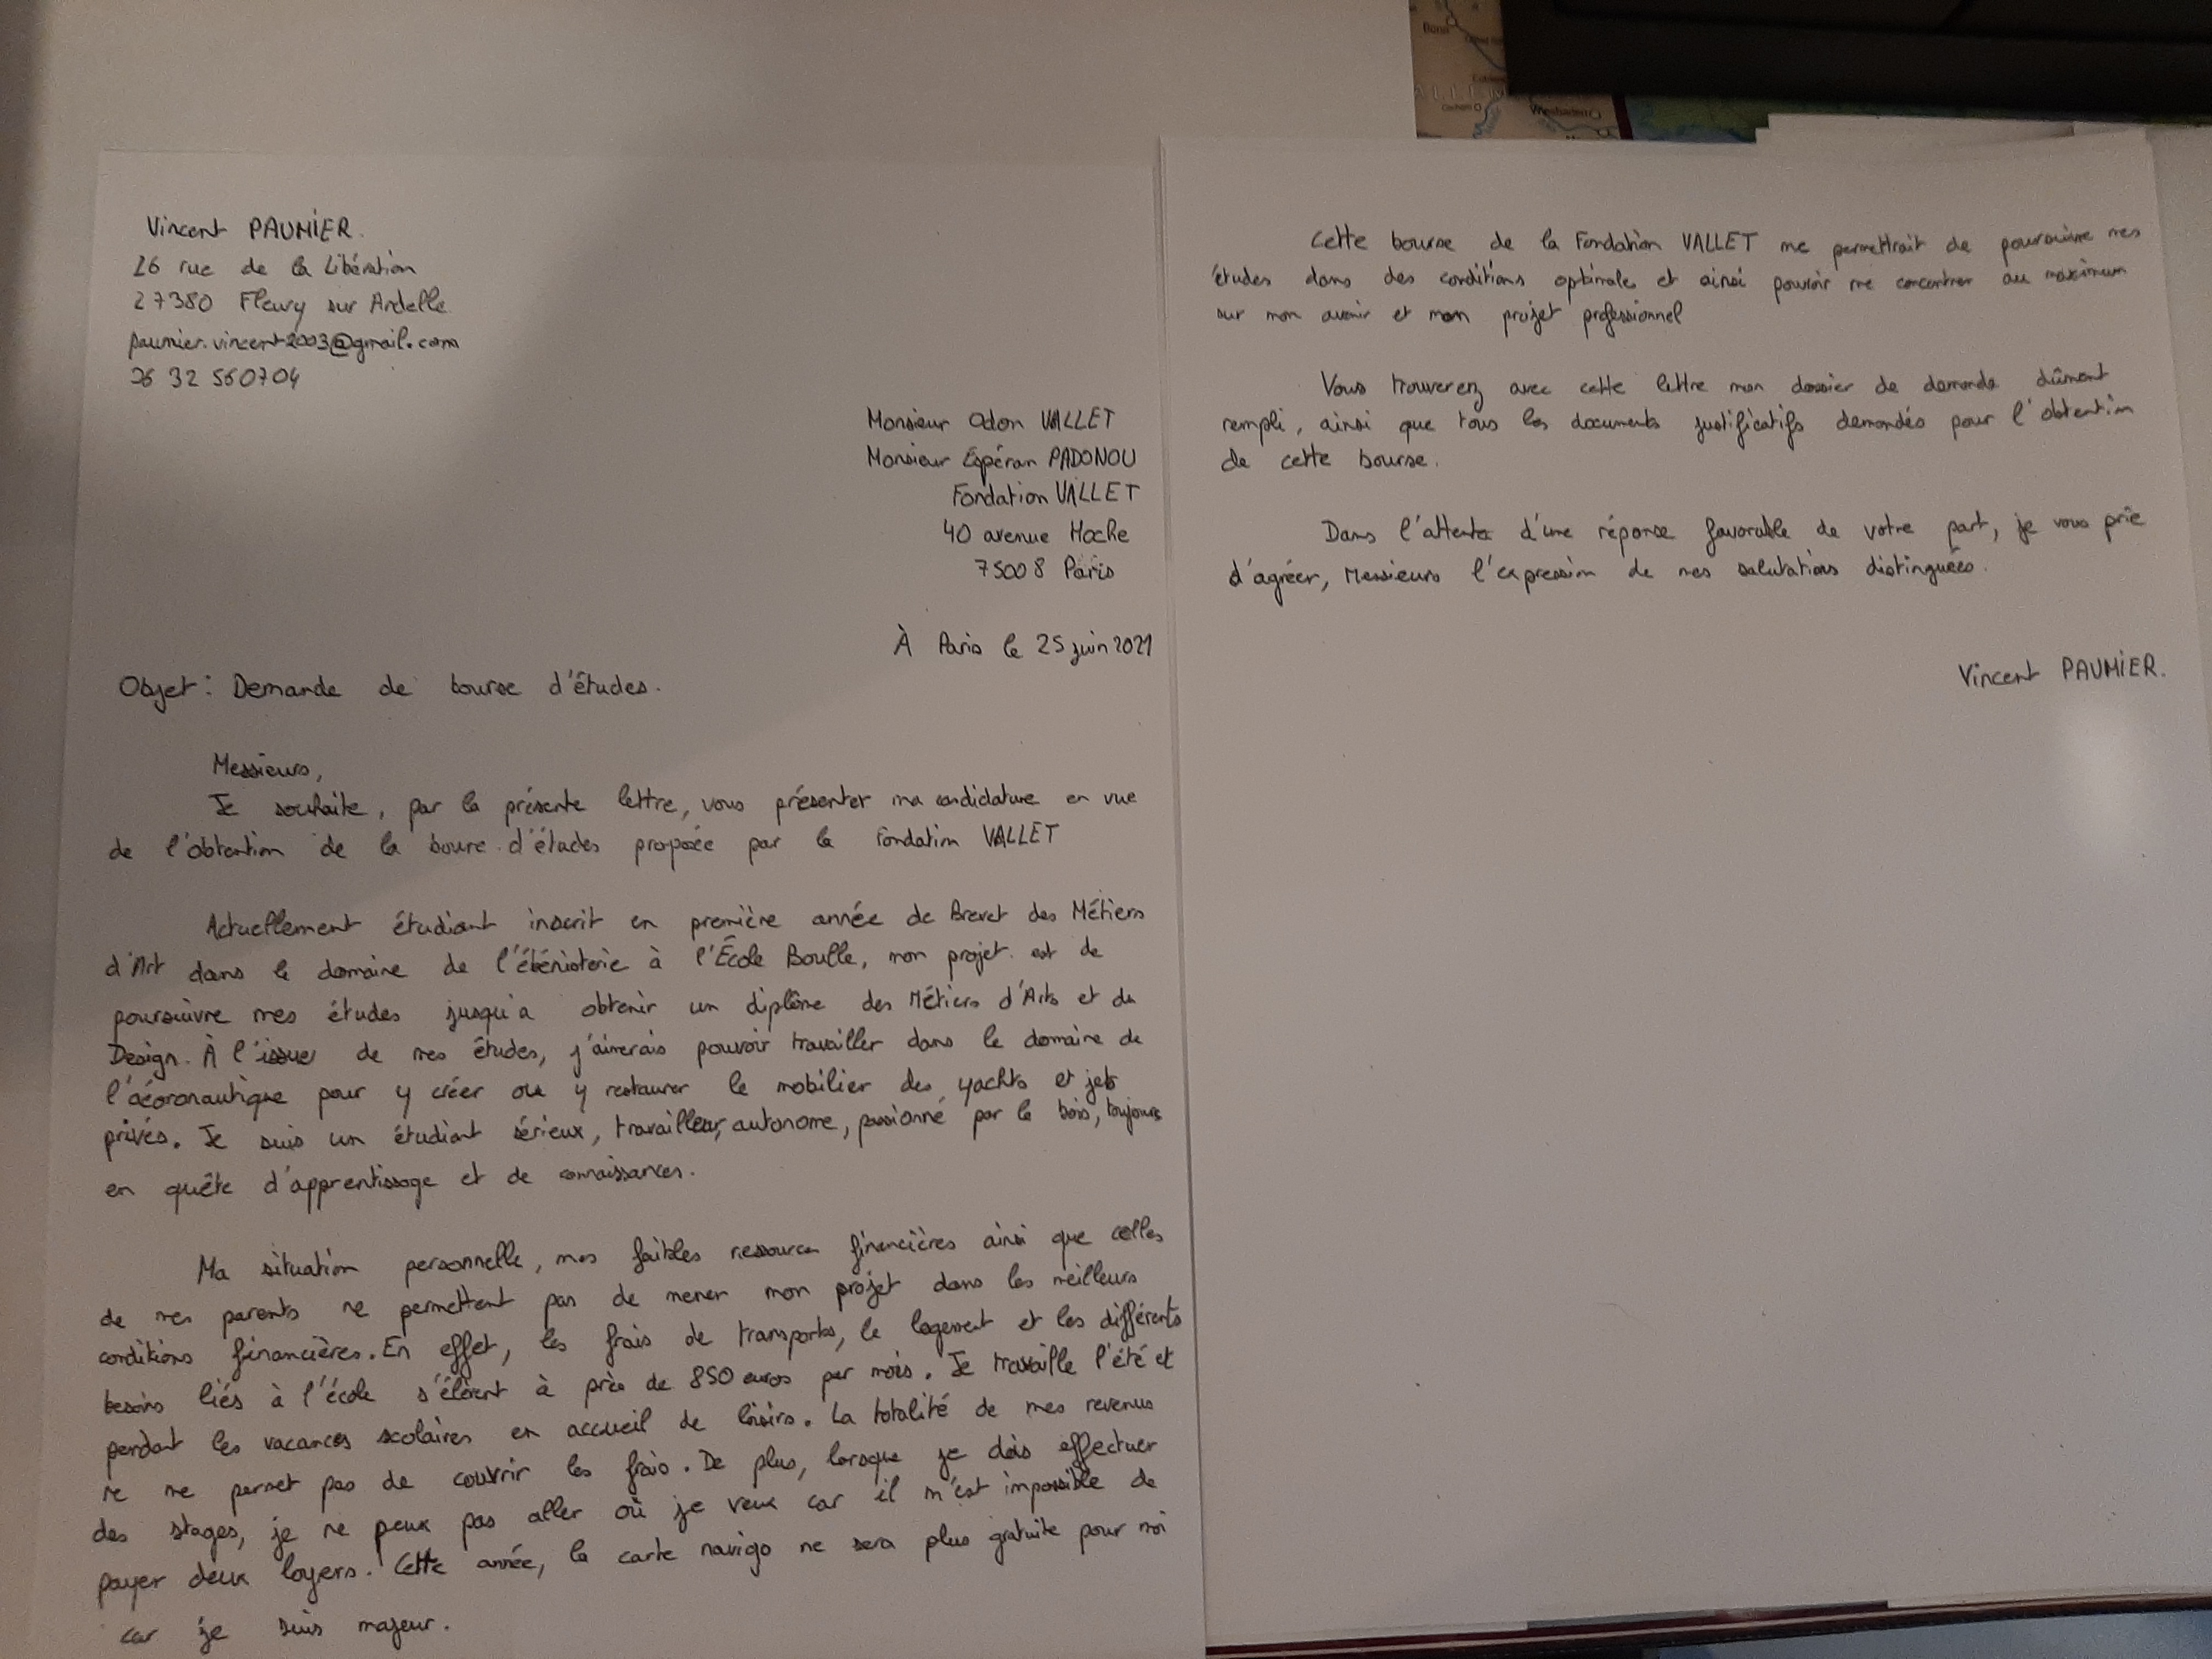 Vincent PAUMIER.
26 rue de la Libération
27380 Fleury sur Andelle
paumier.vincent2003@gmail.com
06 32 560704
Monsieur Odon VALLET
Monsieur Espéran PADONOU
Fondation VALLET
40 avenue Hoche
75008 Paris
À Paris le 25 juin 2021
Objet : Demande de bourse d'études.
Messieurs,
Je souhaite, par la présente lettre, vous présenter ma candidature en vue
de l'obtention de la boure d'études proposée par la Fondation VALLET
Actuellement étudiant inscrit en première année de Brevet des Métiers
d'Art dans le domaine de l'ébénisterie à l'École Boulle, mon projet est de
poursuivre mes études jusqu'a obtenir un diplôme des Métiers d'Arts et du
Design. À l'issue de mes études, j'aimerais pouvoir travailler dans le domaine de
l'aéoronautique pour y créer ou y restaurer le mobilier des yachts et jets
privés. Je suis un étudiant sérieux, travailleur, autonome, passionné par le bois, toujours
en quête d'apprentissage et de connaissances.
Ma situation personnelle, mes faibles ressources financières ainsi que celles
de mes parents ne permettent pas de mener mon projet dans les meilleurs
conditions financières. En effet, les frais de transports, le logement et les différents
besoins liés à l'école s'élèvent à près de 850 euros par mois. Je travaille l'été et
pendant les vacances scolaires en accueil de loisirs. La totalité de mes revenus
ne me permet pas de couvrir les frais. De plus, lorsque je dois effectuer
des stages, je ne peux pas aller où je veux car il m'est impossible de
payer deux loyers. Cette année, la carte navigo ne sera plus gratuite pour moi
car je suis majeur.
Cette bourse de la Fondation VALLET me permettrait de poursuivre mes
études dans des conditions optimales et ainsi pouvoir me concentrer au maximum
sur mon avenir et mon projet professionnel
Vous trouverez avec cette lettre mon dossier de demande dûment
rempli, ainsi que tous les documents justificatifs demandés pour l'obtention
de cette bourse.
Dans l'attente d'une réponse favorable de votre part, je vous prie
d'agréer, Messieurs l'expression de mes salutations distinguées.
Vincent PAUMIER.
Bonn
Wiesbaden